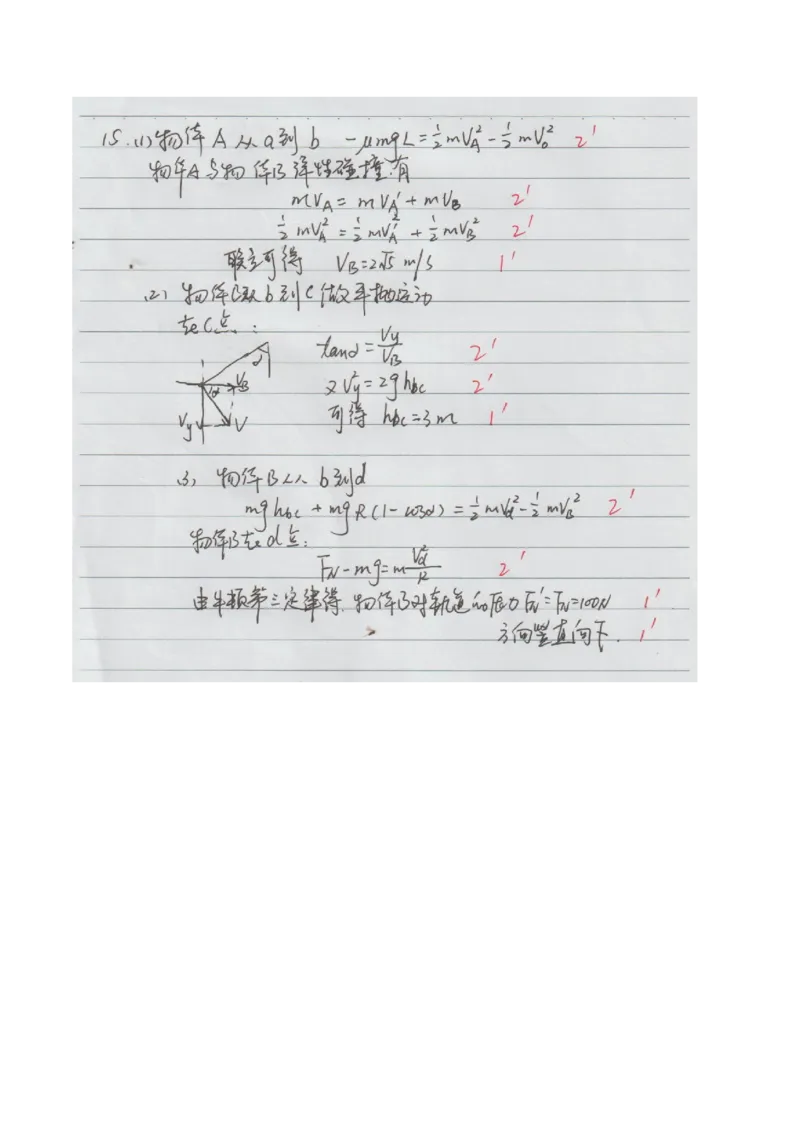 15. (1) 物体 A 从 a 到 b  -μmgL = ½mV_A² - ½mV₀²  2'
物体A与物体B弹性碰撞有
mV_A = mV_A' + mV_B  2'
½mV_A² = ½mV_A'² + ½mV_B²  2'
联立可得  V_B=2√5 m/s  1'
(2) 物体B从 b 到 C 做平抛运动
在C点:
tanα = V_y/V_B  2'
又 V_y² = 2g h_bc  2'
可得 h_bc = 3m  1'
α
α V_B
V_y V
(3) 物体B从 b 到 d
mgh_bc + mgR(1-cosα) = ½mV_d² - ½mV_B²  2'
物体B在d点:
F_N - mg = m V_d²/R  2'
由牛顿第三定律得, 物体B对轨道的压力 F_N' = F_N = 100N  1'
方向竖直向下.  1'